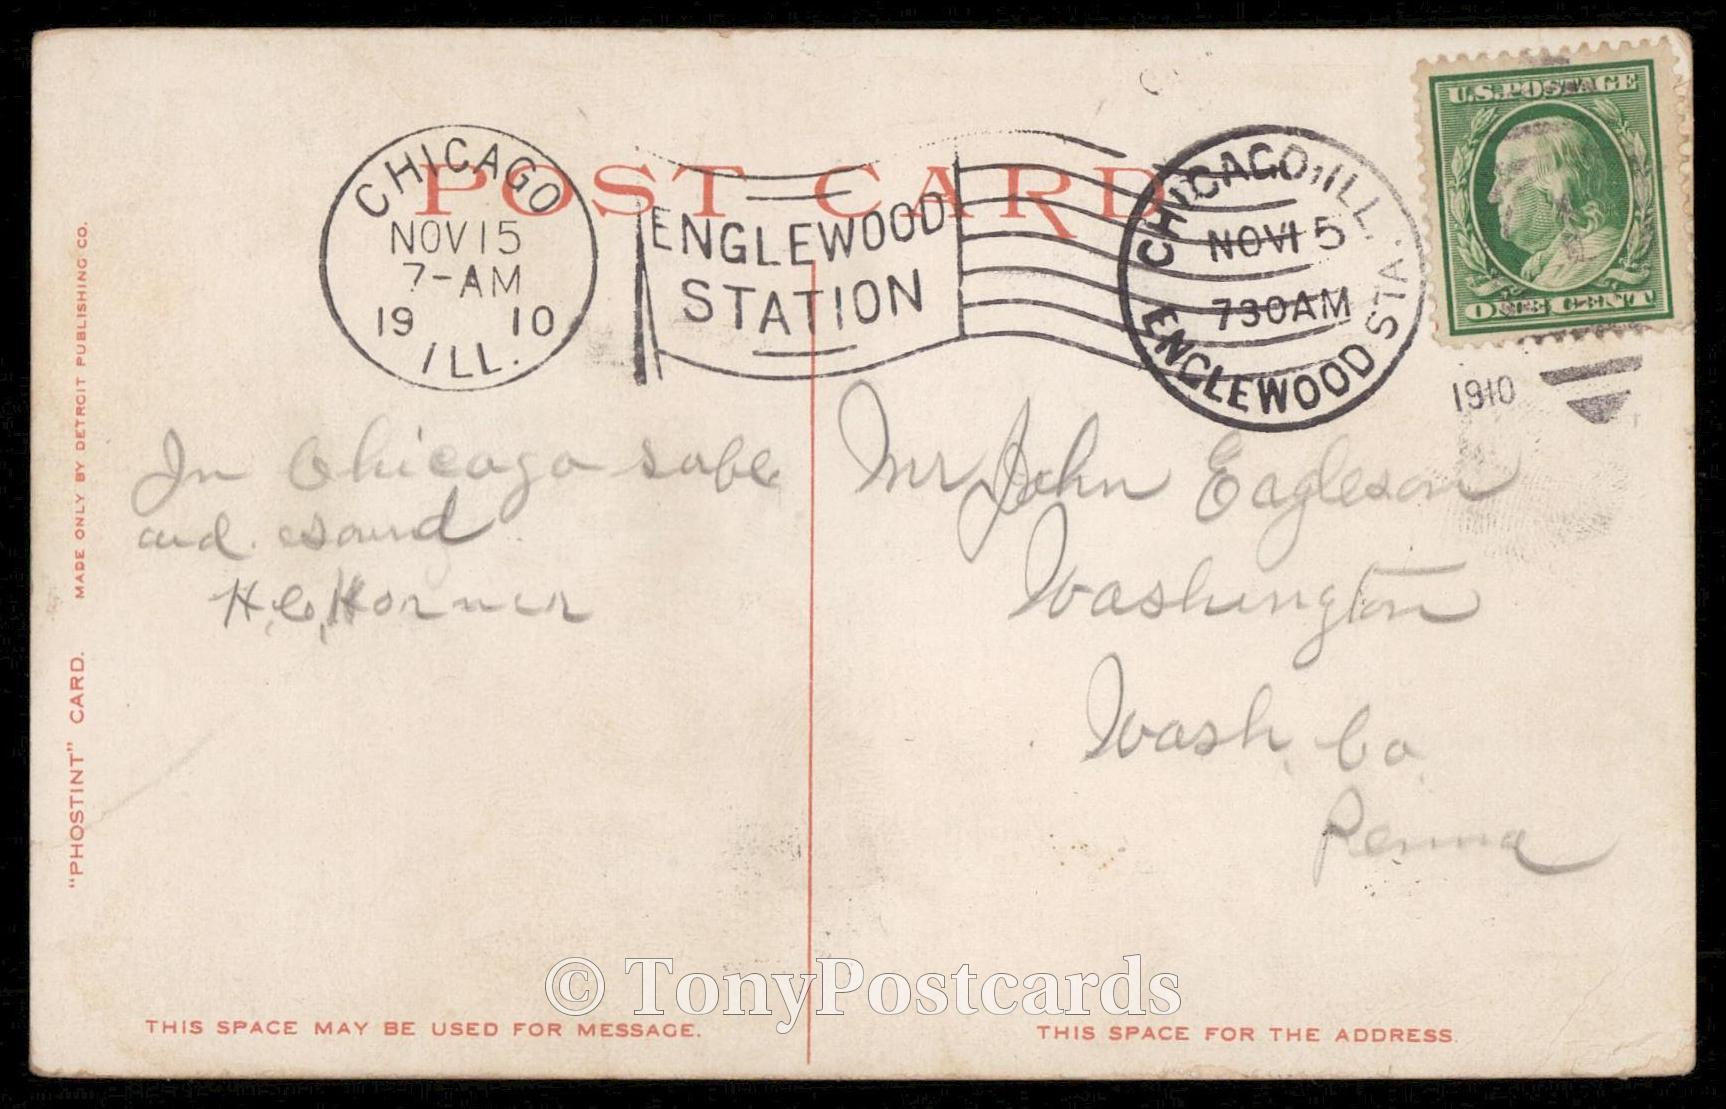 POST CARD
CHICAGO
NOV 15
7-AM
19 10
ILL.
ENGLEWOOD
STATION
CHICAGO, ILL.
NOV 15
730AM
ENGLEWOOD STA.
1910
U.S. POSTAGE
ONE CENT
In Chicago safe
and sound
H. C. Horner
Mr John Eagleson
Washington
Wash. Co.
Penna
"PHOSTINT" CARD. MADE ONLY BY DETROIT PUBLISHING CO.
© TonyPostcards
THIS SPACE MAY BE USED FOR MESSAGE.
THIS SPACE FOR THE ADDRESS.